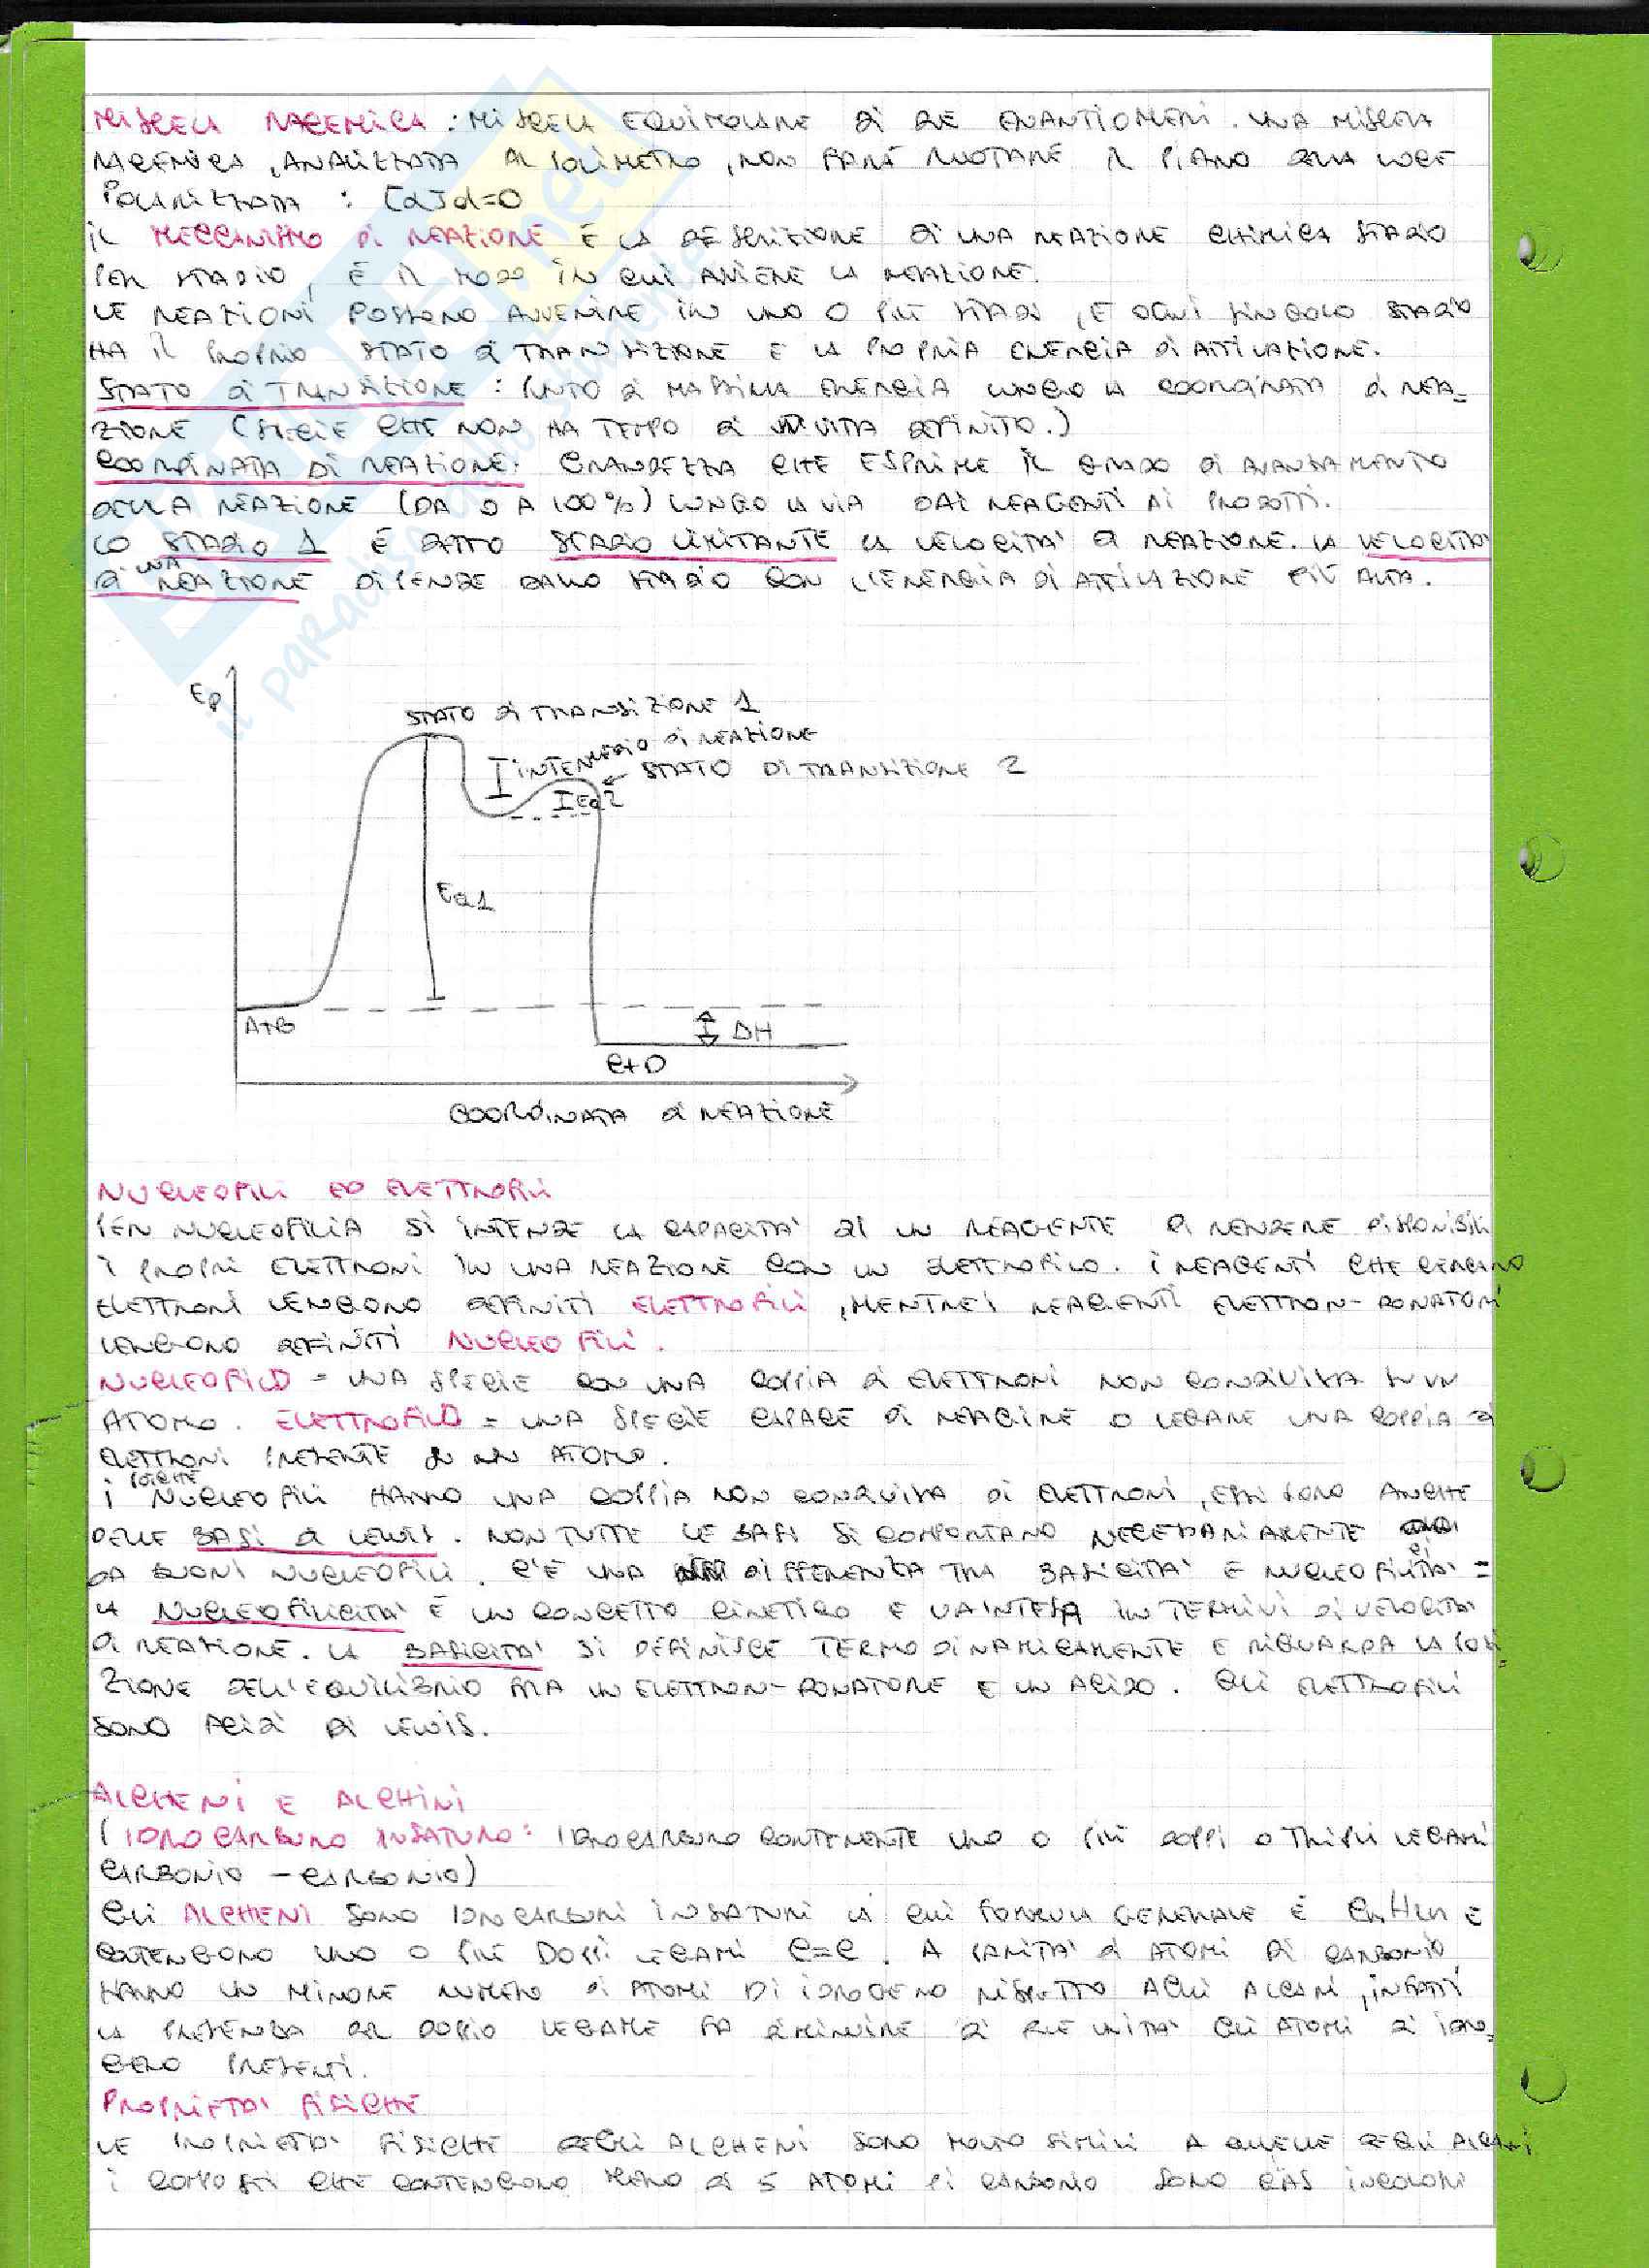 MISCELA RACEMICA : MISCELA EQUIMOLARE DI DUE ENANTIOMERI. UNA MISCELA
RACEMICA, ANALIZZATA AL POLIMETRO, NON FARÀ RUOTARE IL PIANO DELLA LUCE
POLARIZZATA : [α]d=0
IL MECCANISMO DI REAZIONE È LA DESCRIZIONE DI UNA REAZIONE CHIMICA STADIO
PER STADIO, È IL MODO IN CUI AVVIENE LA REAZIONE.
LE REAZIONI POSSONO AVVENIRE IN UNO O PIÙ STADI, E OGNI SINGOLO STADIO
HA IL PROPRIO STATO DI TRANSIZIONE E LA PROPRIA ENERGIA DI ATTIVAZIONE.
STATO DI TRANSIZIONE : PUNTO DI MASSIMA ENERGIA LUNGO LA COORDINATA DI REA-
ZIONE (SPECIE CHE NON HA TEMPO DI VITA DEFINITO.)
COORDINATA DI REAZIONE: GRANDEZZA CHE ESPRIME IL GRADO DI AVANZAMENTO
DELLA REAZIONE (DA 0 A 100%) LUNGO LA VIA DAI REAGENTI AI PRODOTTI.
LO STADIO 1 È DETTO STADIO LIMITANTE LA VELOCITÀ DI REAZIONE. LA VELOCITÀ
DI UNA REAZIONE DIPENDE DALLO STADIO CON L'ENERGIA DI ATTIVAZIONE PIÙ ALTA.
Ep
STATO DI TRANSIZIONE 1
INTERMEDIO DI REAZIONE
STATO DI TRANSIZIONE 2
Ea2
Ea1
A+B
ΔH
C+D
COORDINATA DI REAZIONE
NUCLEOFILI ED ELETTROFILI
PER NUCLEOFILIA SI INTENDE LA CAPACITÀ DI UN REAGENTE DI RENDERE DISPONIBILI
I PROPRI ELETTRONI IN UNA REAZIONE CON UN ELETTROFILO. I REAGENTI CHE CERCANO
ELETTRONI VENGONO DEFINITI ELETTROFILI, MENTRE I REAGENTI ELETTRON-DONATORI
VENGONO DEFINITI NUCLEOFILI.
NUCLEOFILO = UNA SPECIE CON UNA COPPIA DI ELETTRONI NON CONDIVISA SU UN
ATOMO. ELETTROFILO = UNA SPECIE CAPACE DI REAGIRE O LEGARE UNA COPPIA DI
ELETTRONI PRESENTE SU UN ATOMO.
POICHÈ I NUCLEOFILI HANNO UNA COPPIA NON CONDIVISA DI ELETTRONI, ESSI SONO ANCHE
DELLE BASI DI LEWIS. NON TUTTE LE BASI SI COMPORTANO NECESSARIAMENTE
DA BUONI NUCLEOFILI. C'È UNA DIFFERENZA TRA BASICITÀ E NUCLEOFILICITÀ =
LA NUCLEOFILICITÀ È UN CONCETTO CINETICO E VA INTESA IN TERMINI DI VELOCITÀ
DI REAZIONE. LA BASICITÀ SI DEFINISCE TERMODINAMICAMENTE E RIGUARDA LA POSI-
ZIONE DELL'EQUILIBRIO FRA UN ELETTRON-DONATORE E UN ACIDO. GLI ELETTROFILI
SONO ACIDI DI LEWIS.
ALCHENI E ALCHINI
(IDROCARBURO INSATURO: IDROCARBURO CONTENENTE UNO O PIÙ DOPPI O TRIPLI LEGAMI
CARBONIO-CARBONIO)
GLI ALCHENI SONO IDROCARBURI INSATURI LA CUI FORMULA GENERALE È CnH2n E
CONTENGONO UNO O PIÙ DOPPI LEGAMI C=C. A PARITÀ DI ATOMI DI CARBONIO,
HANNO UN MINORE NUMERO DI ATOMI DI IDROGENO RISPETTO AGLI ALCANI, INFATTI
LA PRESENZA DEL DOPPIO LEGAME FA DIMINUIRE DI DUE UNITÀ GLI ATOMI DI IDRO-
GENO PRESENTI.
PROPRIETÀ FISICHE
LE PROPRIETÀ FISICHE DEGLI ALCHENI SONO MOLTO SIMILI A QUELLE DEGLI ALCANI
I COMPOSTI CHE CONTENGONO MENO DI 5 ATOMI DI CARBONIO SONO GAS INCOLORI